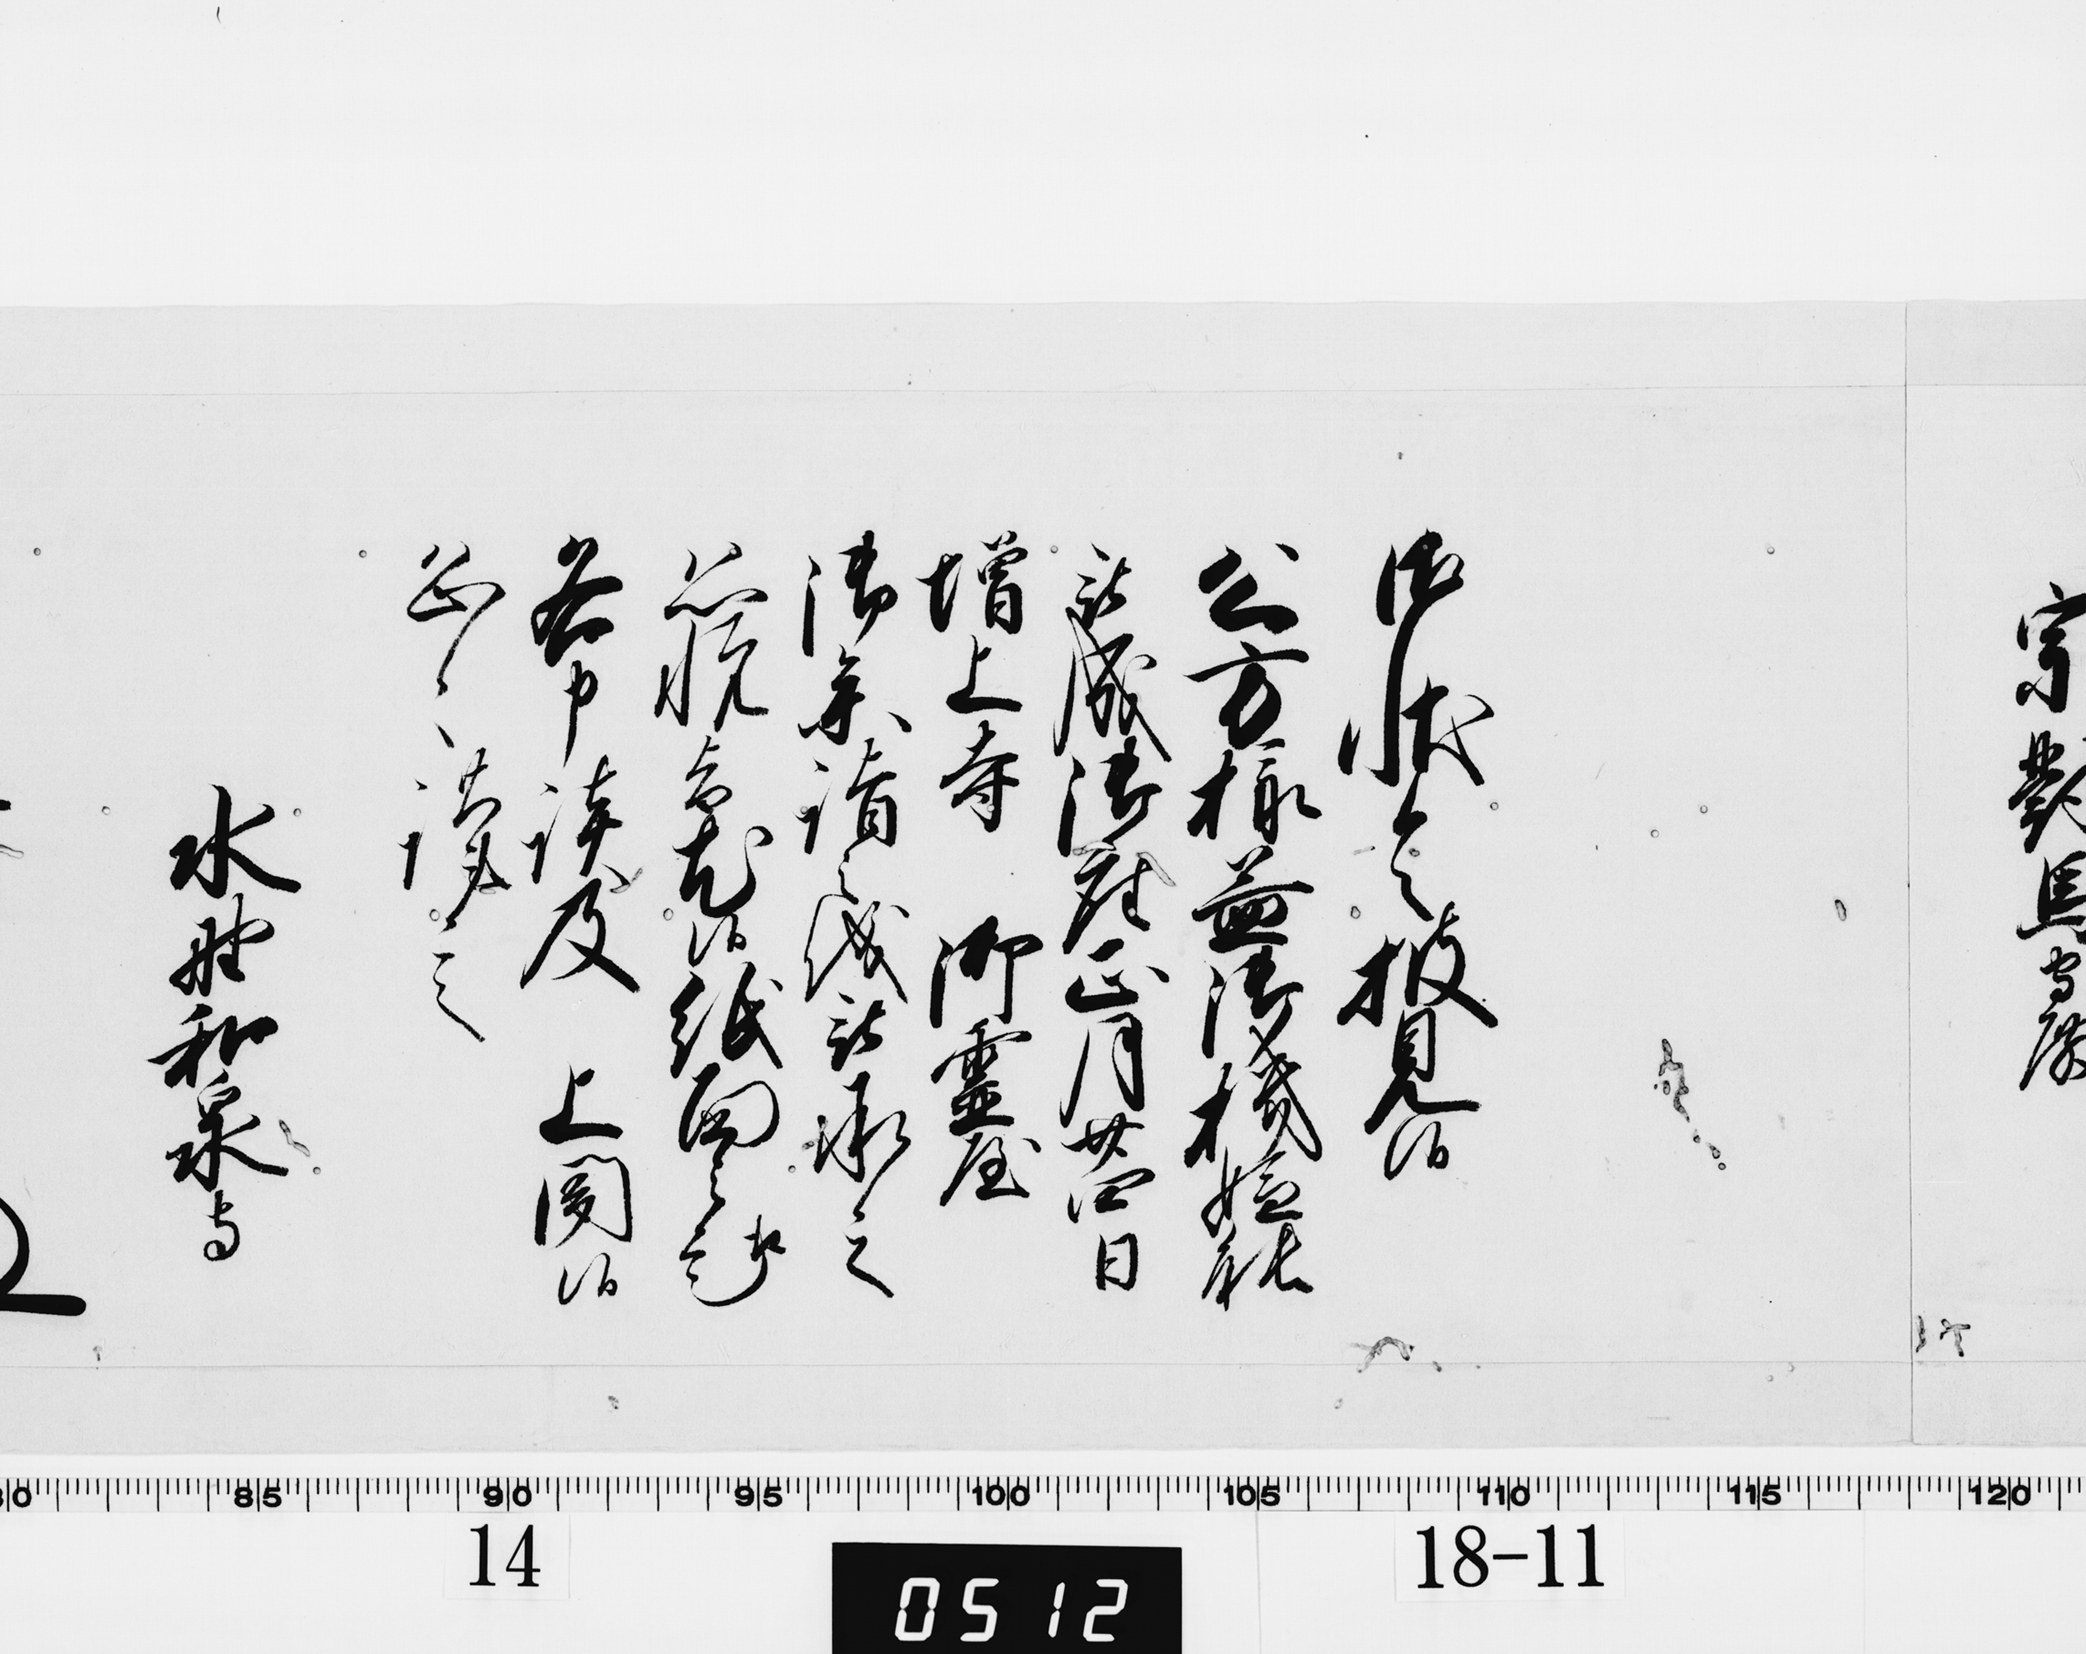 宗對馬守殿
御状令披見候
公方様益御機嫌能
被成御座正月廿四日
増上寺 御霊屋
御参詣之儀被承之
恐悦旨尤候紙面之趣
各申談及 上聞候
恐々謹言
水野和泉守
80 85 90 95 100 105 110 115 120
14
18-11
0512